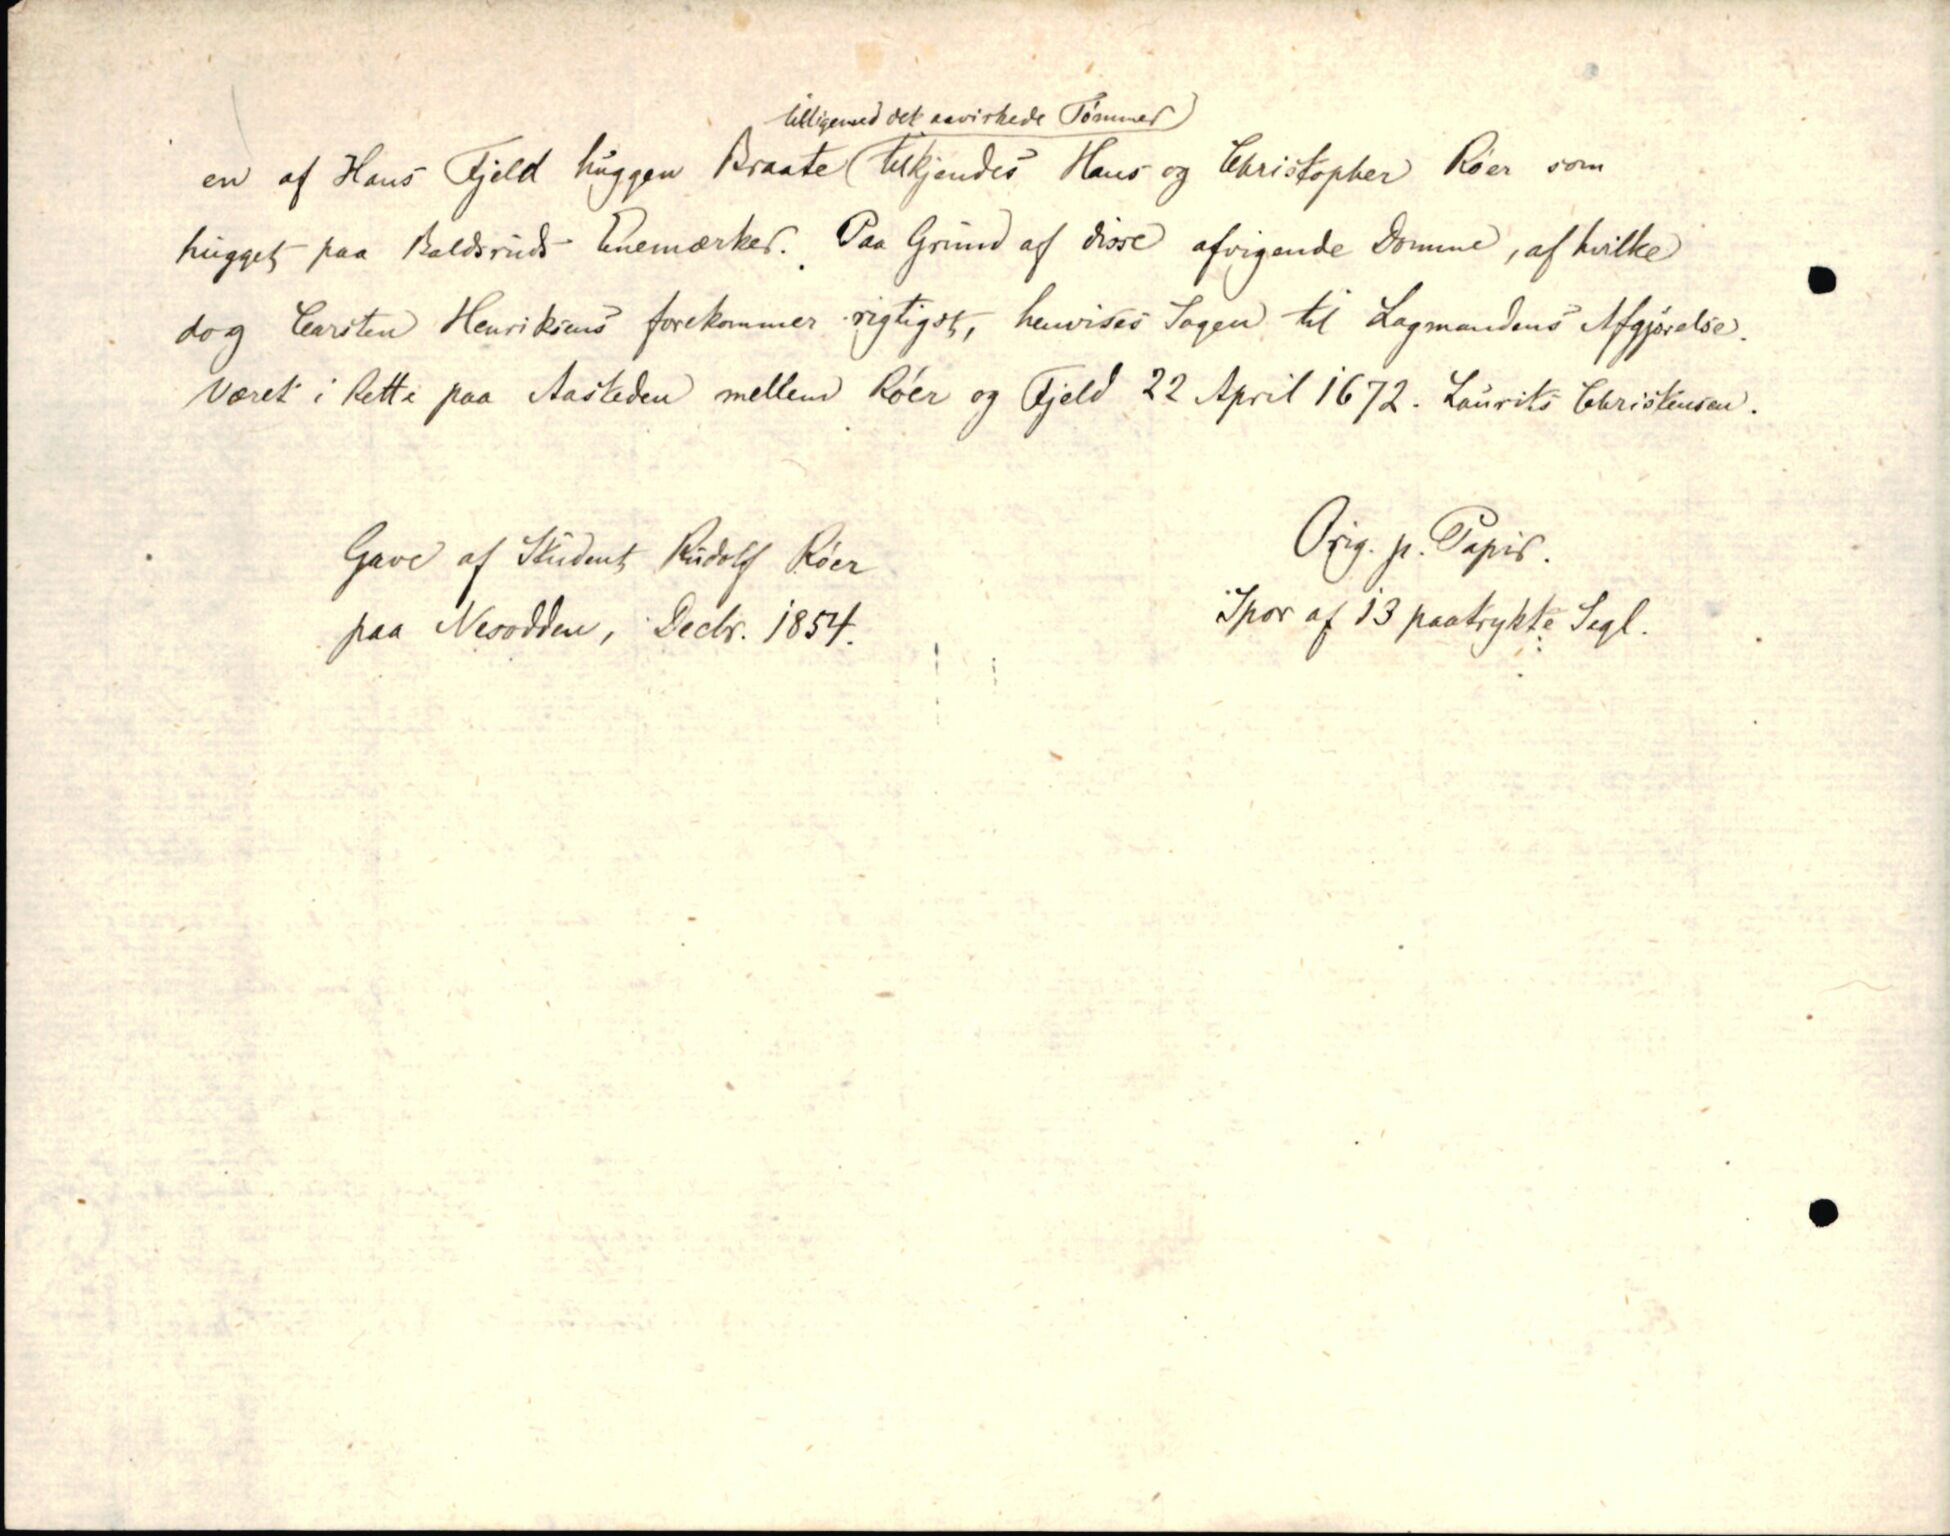 tilligemed det aavirkede Tømmer)
en af Hans Fjeld huggen Braate (tilkjendes Hans og Christopher Røer som
hugget paa Baldsruds Enemærker. Paa Grund af disse afvigende Domme, af hvilke
dog Carsten Henriksens forekommer rigtigst, henvises Sagen til Lagmandens Afgjørelse.
Været i Rette paa Aasteden mellem Røer og Fjeld 22 April 1672. Laurits Christensen.
Gave af Student Rudolf Røer
paa Nesodden, Decbr. 1854.
Orig. p. Papir.
Spor af 13 paatrykte Segl.